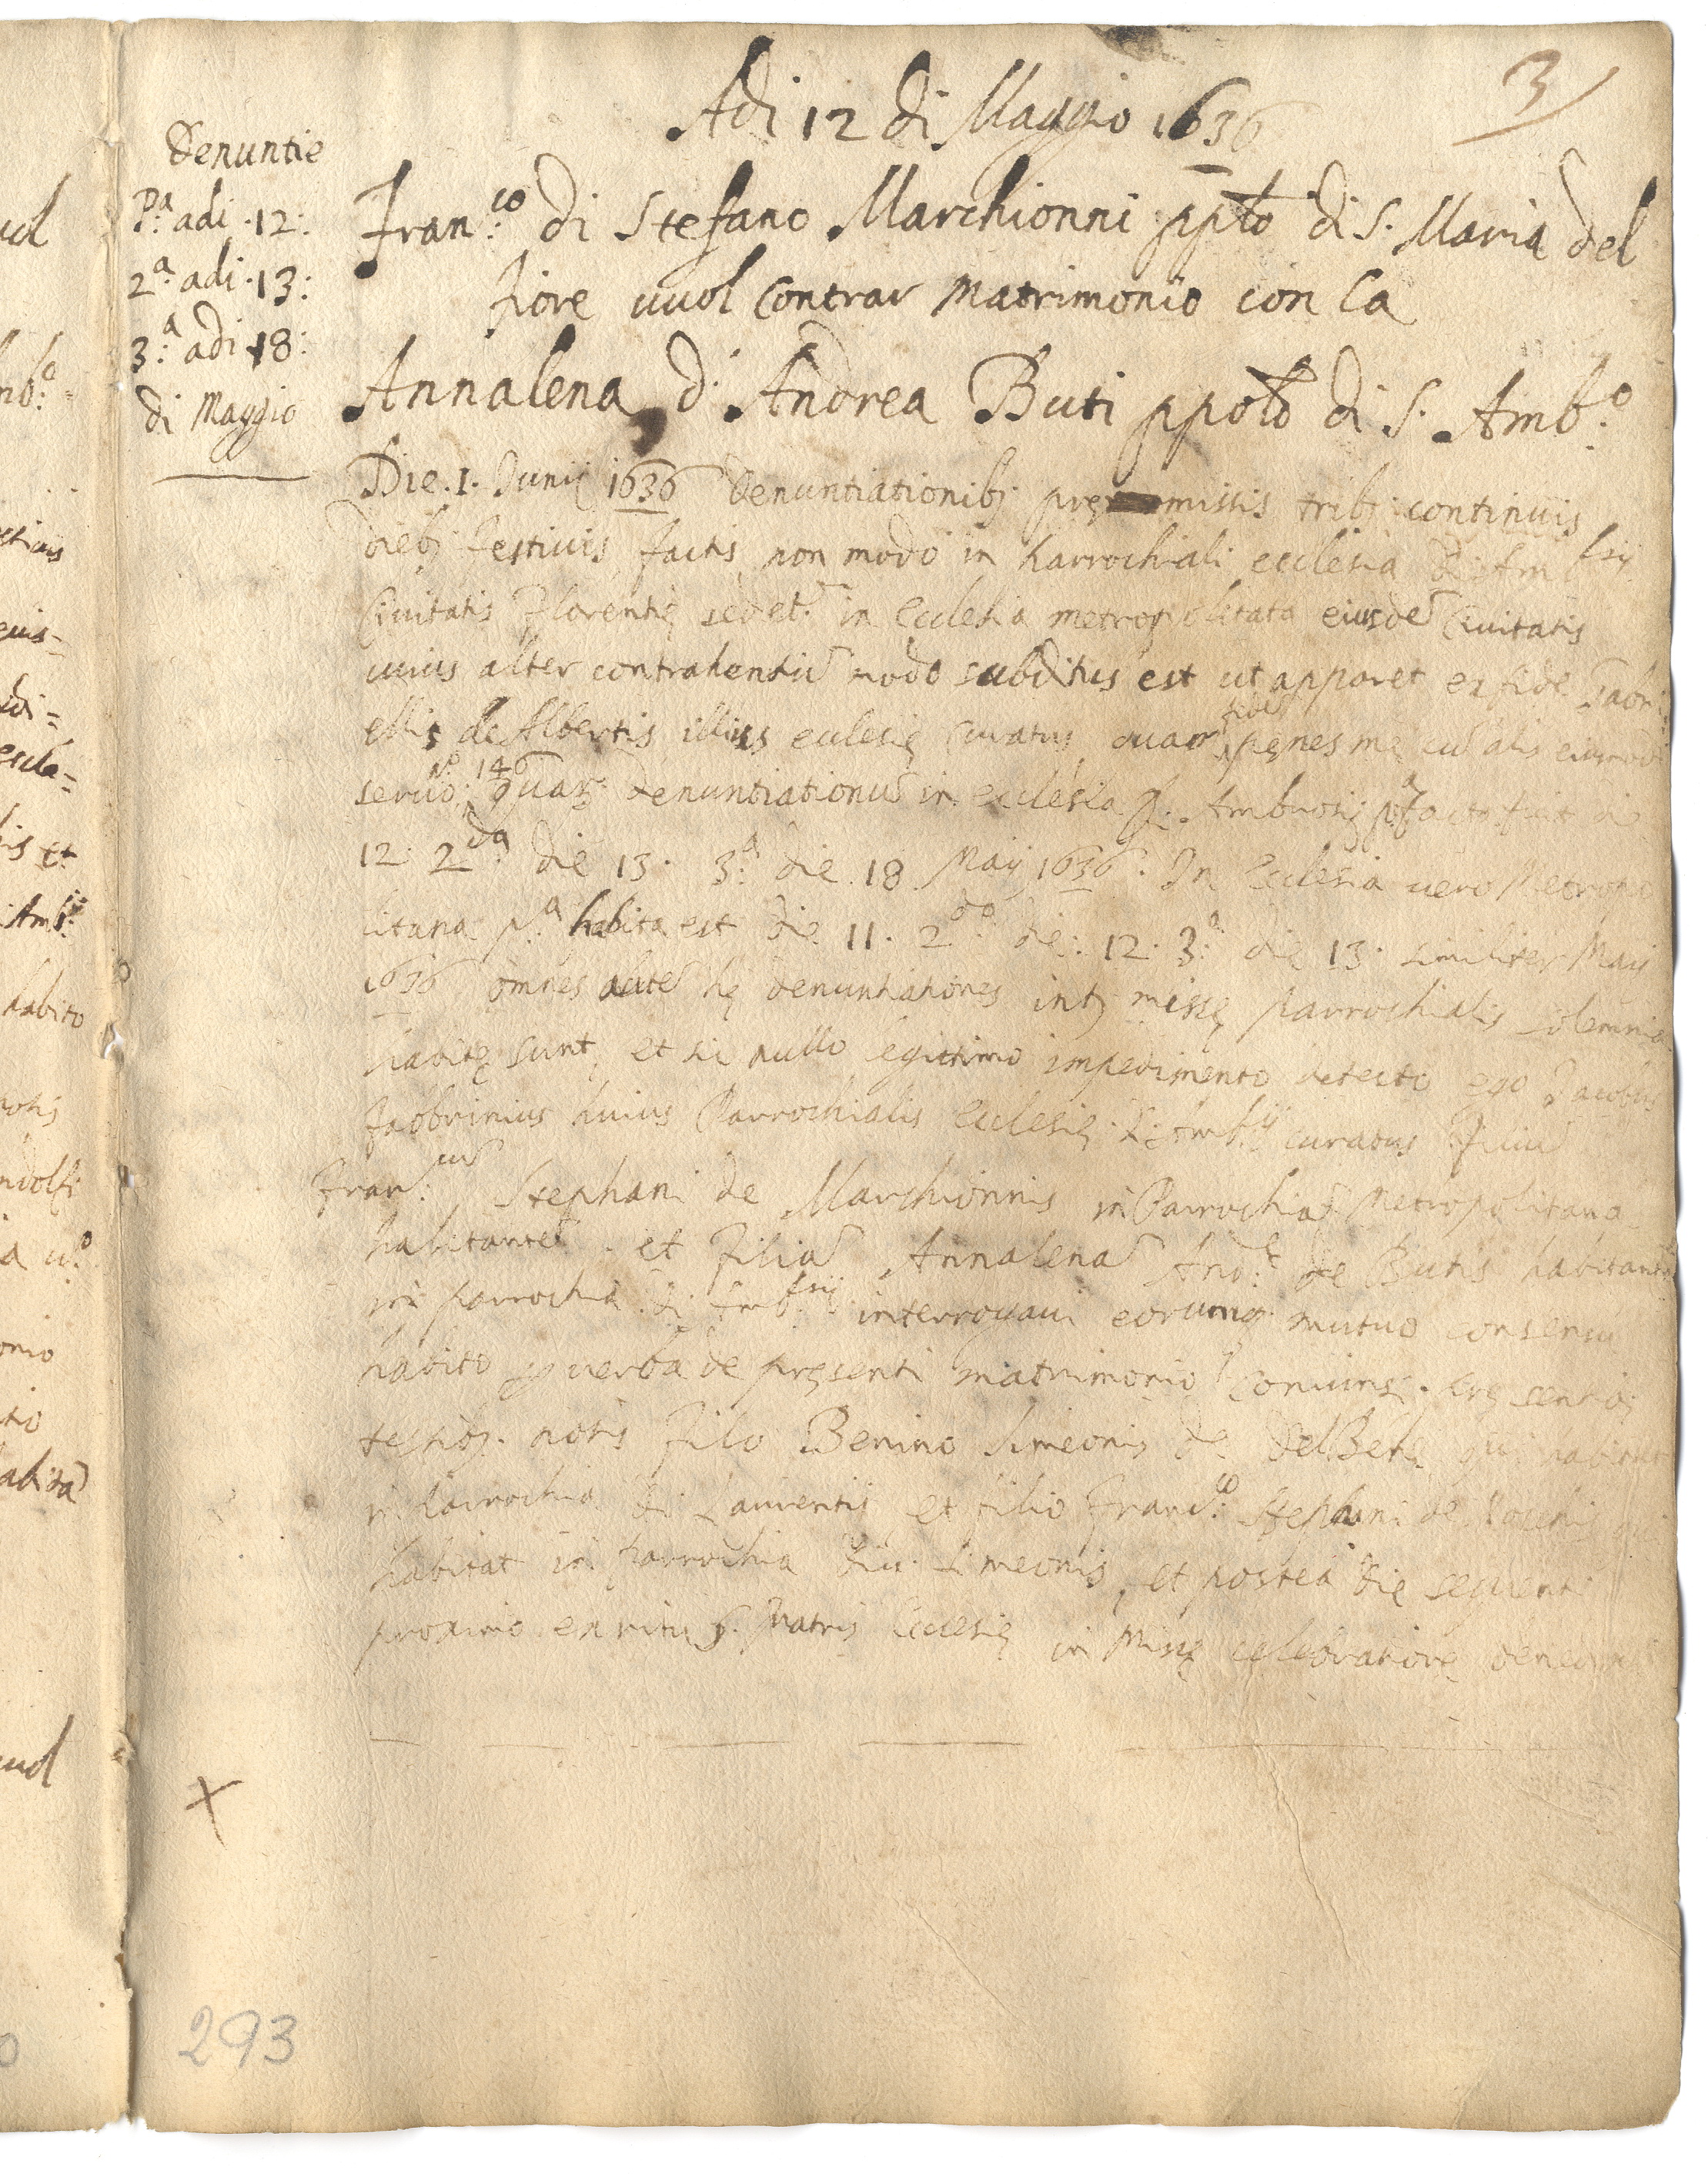 3
Adi 12 di Maggio 1636
Denuntie
P.ª adi .12:
2.ª adi .13:
3.ª adi 18:
di Maggio
Fran.co di Stefano Marchionni ppto di S. Maria del
Fiore vuol contrar Matrimonio con la
Annalena d' Andrea Buti ppolo di S. Amb.o
Die. 1. Junij 1636 Denuntiationibj pręmissis tribj continuis
diebj festivis factis non modo in Parrochiali ecclesia D. Ambsij
Civitatis Florentię sed et. in Ecclesia metropolitata eiusde Civitatis
cuius alter contrahentiu modo subditus est ut apparet ex fide Gabri
ellis de Albertis illius ecclesię Curatus quam fide penes me cu alis eiusmodi
servo: n.o 146 quar denuntiationu in ecclesia D. Ambrosij p.ª facta fuit die
12. 2.da die 13. 3.ª die 18 Maij 1636. In Ecclesia vero Metropo
litana p.ª habita est die 11. 2.da die. 12. 3.ª die 13. similiter Maij
1636 omnes aute hę denuntiationes intr missę parrochialis solemnia
habitę sunt, et sic nullo legittimo impedimento detecto ego Jacobus
Fabbrinius huius Parrochialis Ecclesię D. Amb.sij curatus Filiu
Fran.cu Stephani de Marchionnis in Parrochia Metropolitana
habitante. et Filia Annalena And.ę de Butis habitante
in parrochia D. Amb.sij interrogavi eorumq. mutuo consensu
habito p verba de pręsenti matrimonio coniunxi. Pręsentibj
testibj. notis Filo Benino Simeonis de Del Bene qui habitat
in Parrochia D. Laurentij et filio Franc.co Stephani de qui
habitat in Parrochia Simeonis, et postea die sequenti
proximo ex ritu S. Matris Ecclesię in Missę celebratione
X
293